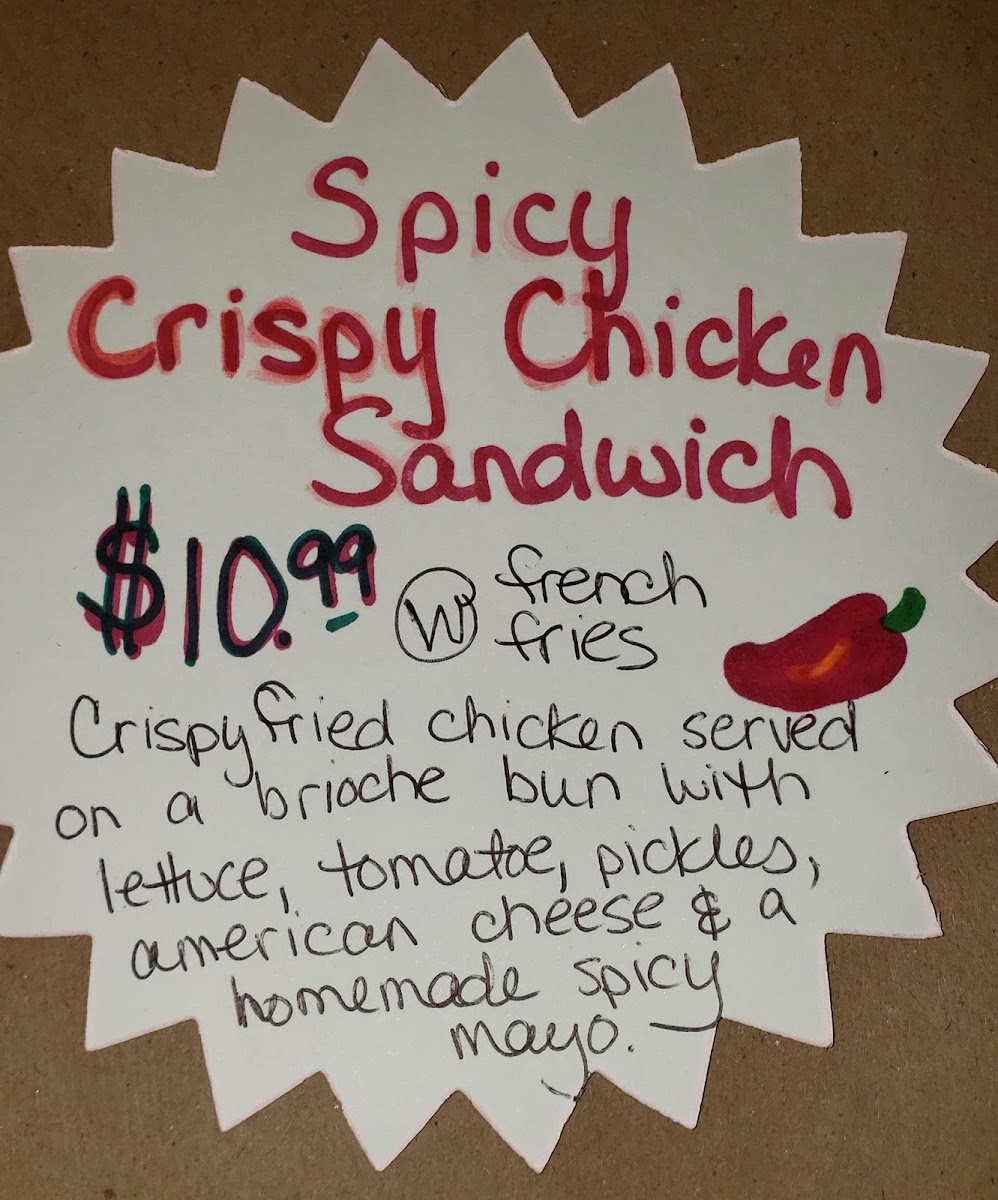 Spicy
Crispy Chicken
Sandwich
$10.99 W french
fries
Crispy fried chicken served
on a brioche bun with
lettuce, tomatoe, pickles,
american cheese & a
homemade spicy
mayo.